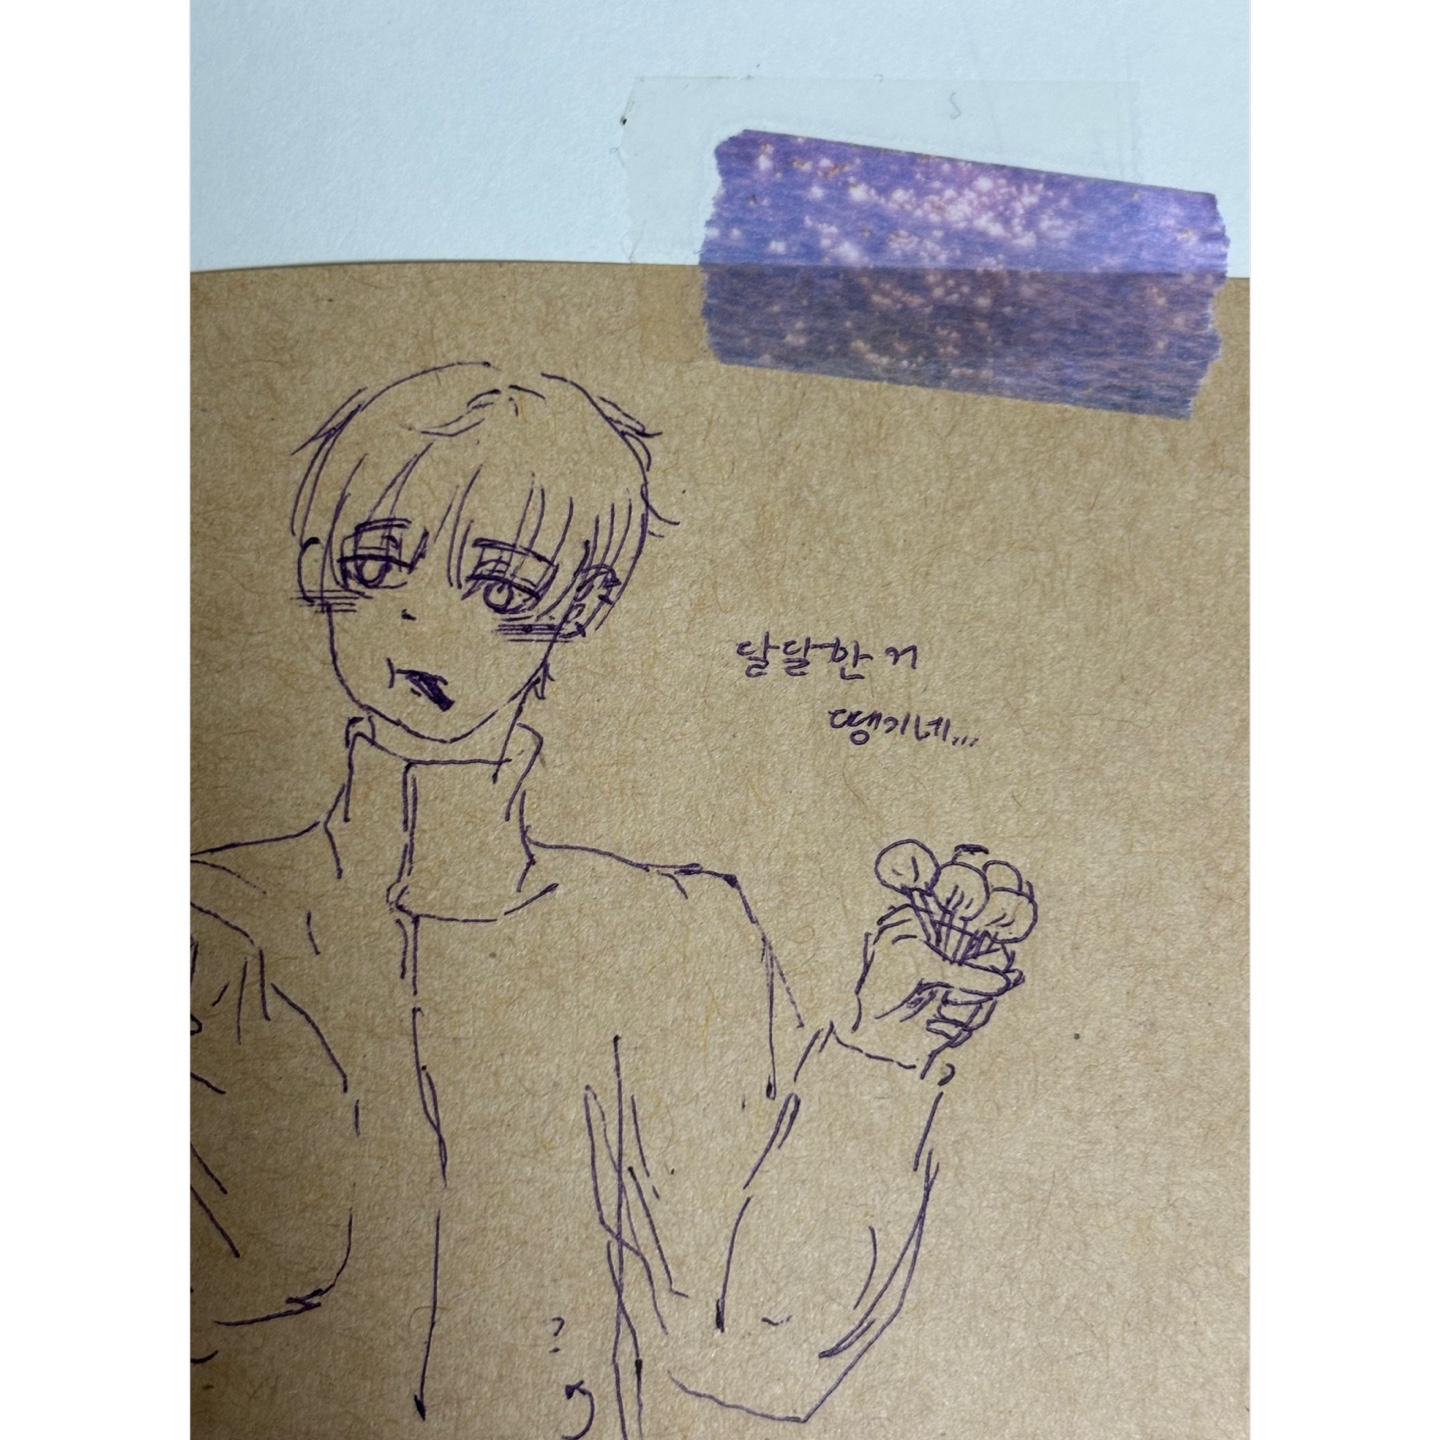 달달한 거
땡기네...
?